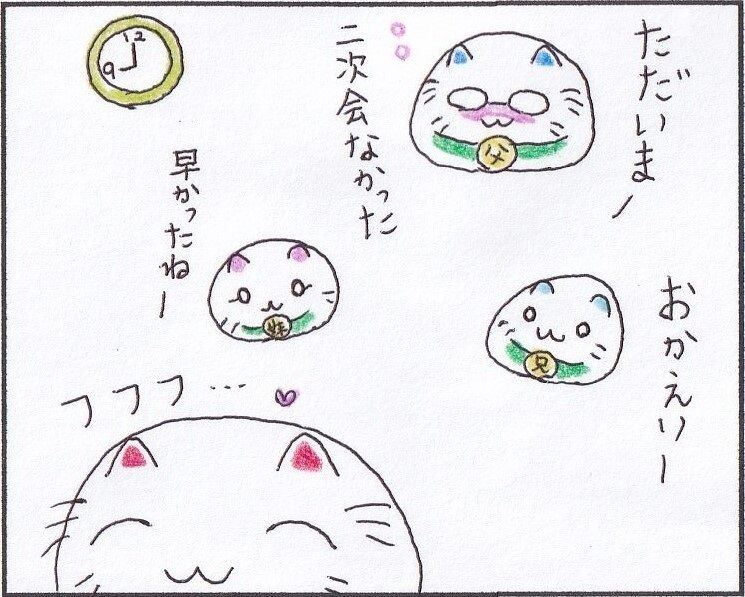 ただいまー
父
二次会なかった
おかえりー
兄
早かったねー
妹
12
9
フフフ…